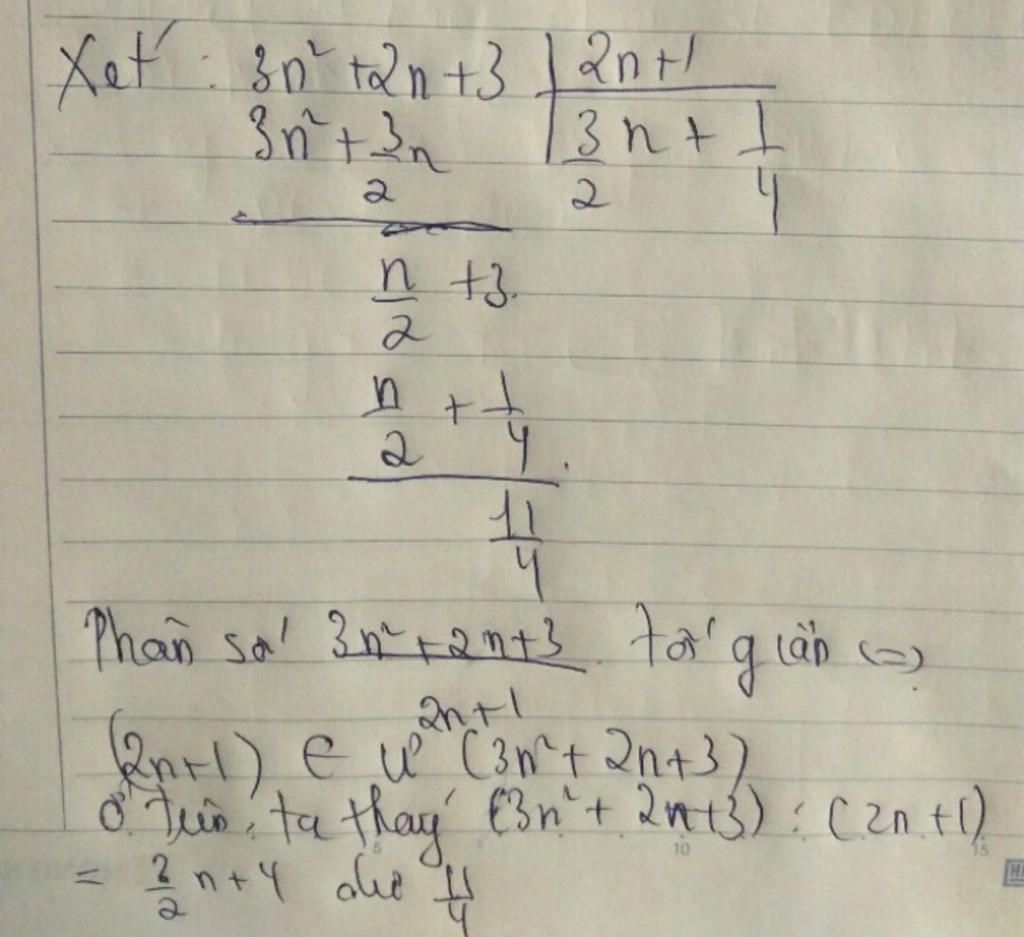 Xét : 3n² + 2n + 3 | 2n+1
3n² + 3/2 n | 3/2 n + 1/4
n/2 + 3.
n/2 + 1/4.
11/4
Phân số (3n² + 2n + 3)/(2n+1) tối giản <=>
(2n+1) ∈ Ư (3n² + 2n + 3)
Ở trên, ta thấy (3n² + 2n + 3) : (2n + 1)
= 3/2 n + 4 dư 11/4
5 10 15